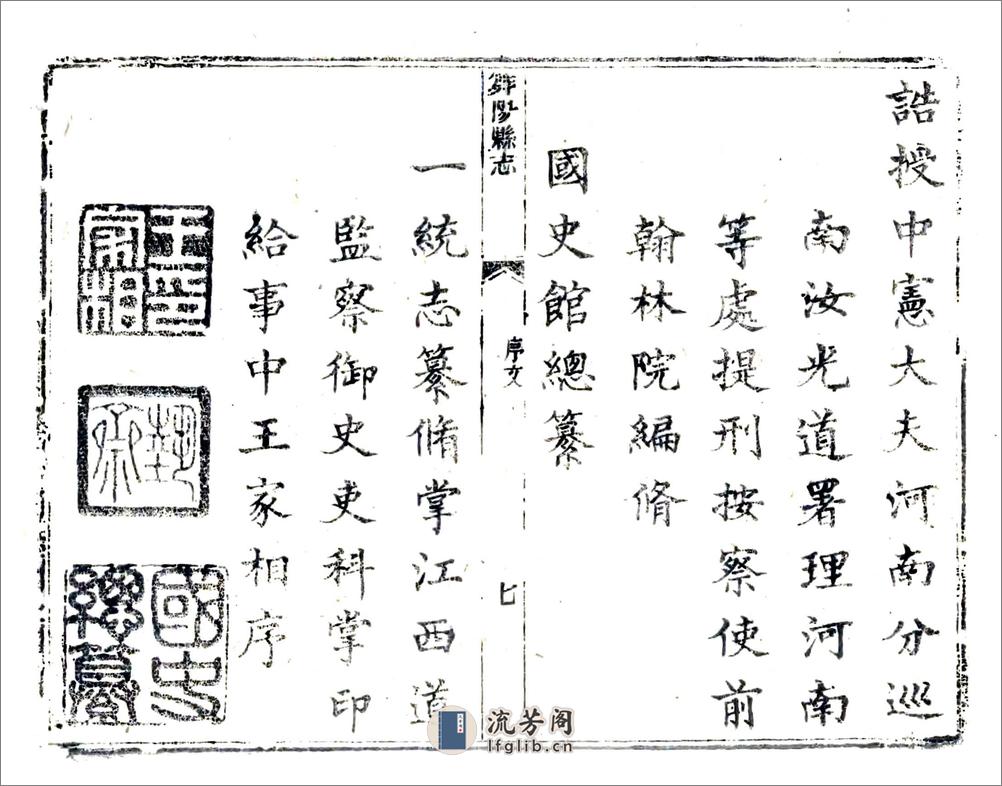 誥授中憲大夫河南分巡
南汝光道署理河南
等處提刑按察使前
翰林院編脩
國史館總纂
舞陽縣志
序文
七
一統志纂脩掌江西道
監察御史吏科掌印
給事中王家相序
王印家相
藝齋
國史總纂
流芳阁
lfglib.cn